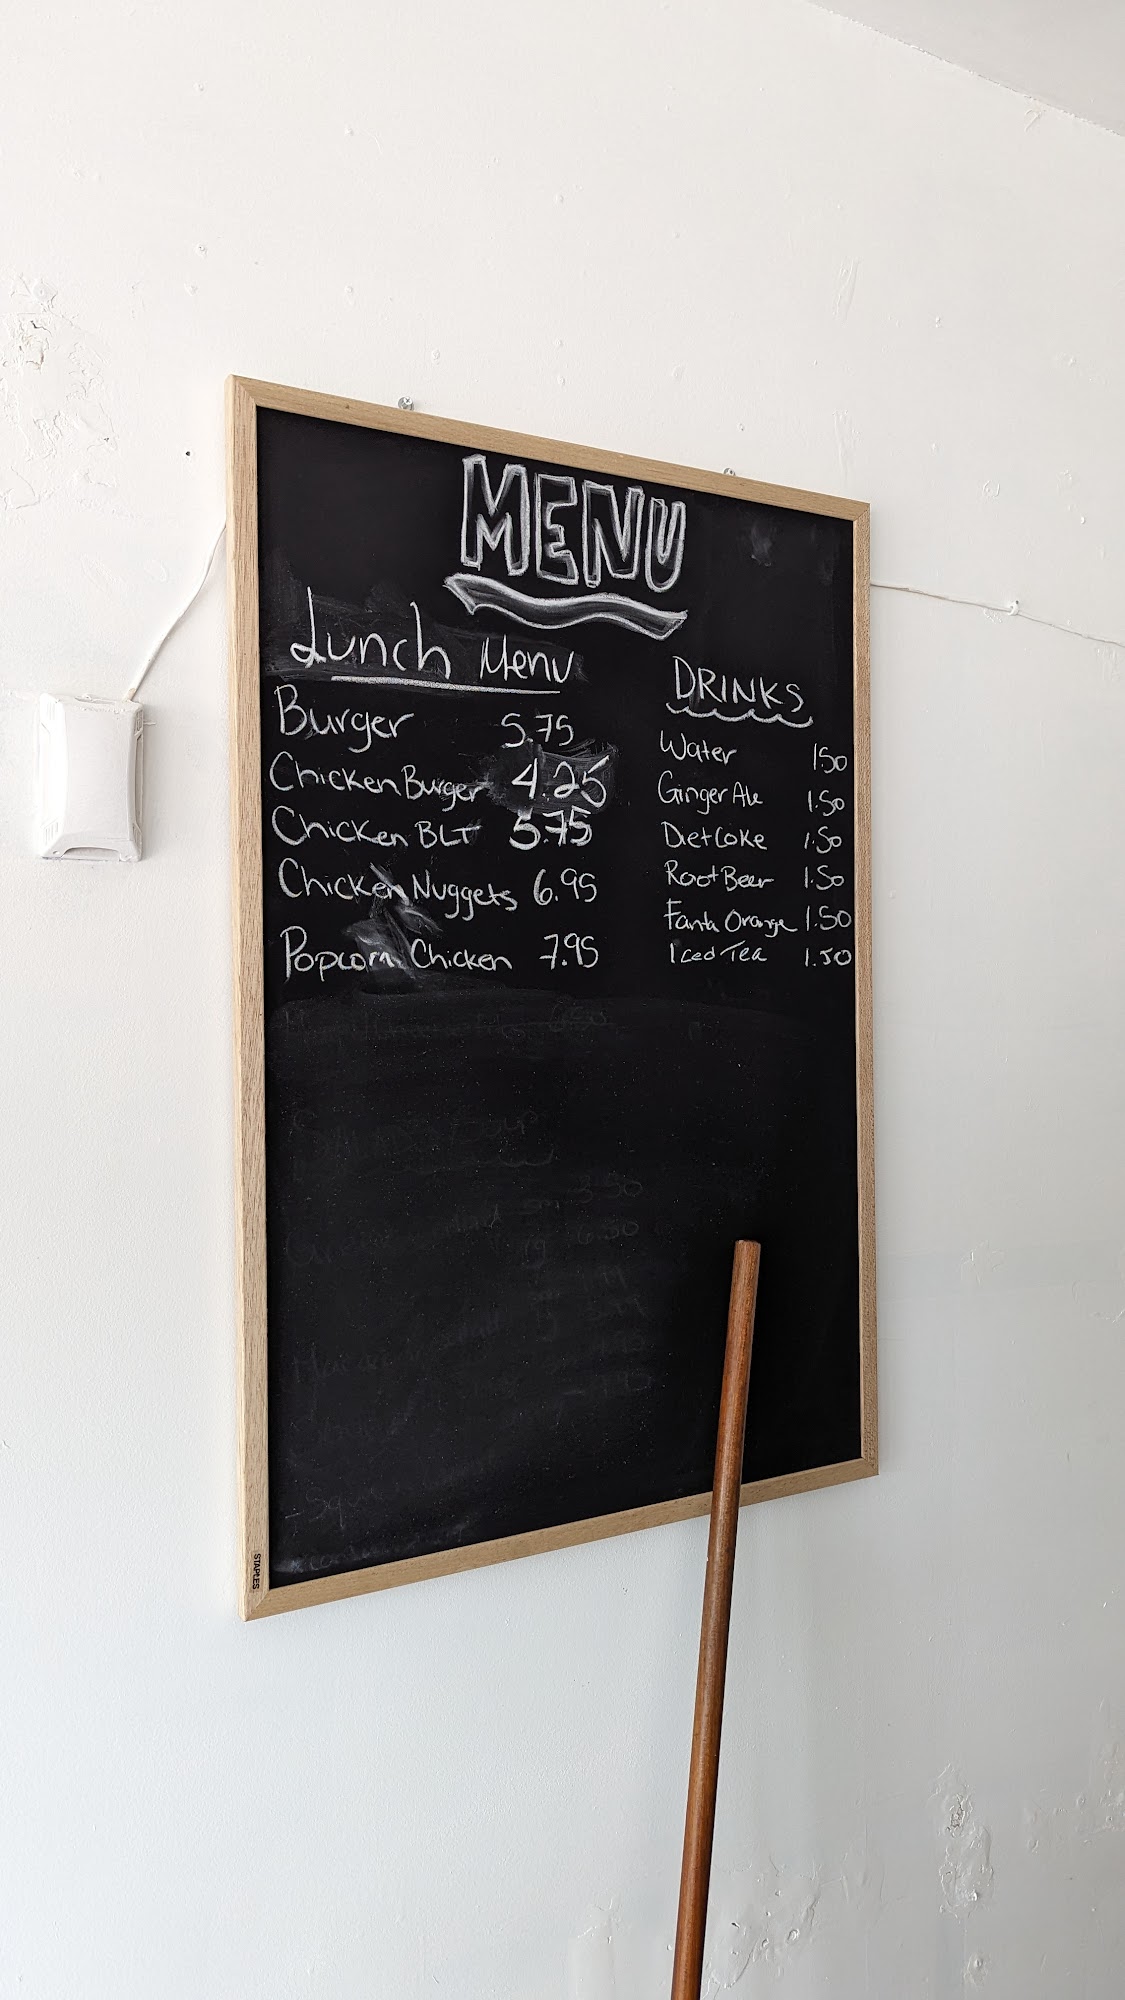 MENU
Lunch Menu
Burger 5.75
Chicken Burger 4.25
Chicken BLT 5.75
Chicken Nuggets 6.95
Popcorn Chicken 7.95
DRINKS
Water 150
Ginger Ale 1.50
Diet Coke 1.50
Root Beer 1.50
Fanta Orange 1.50
Iced Tea 1.50
3.50
6.50
STAPLES